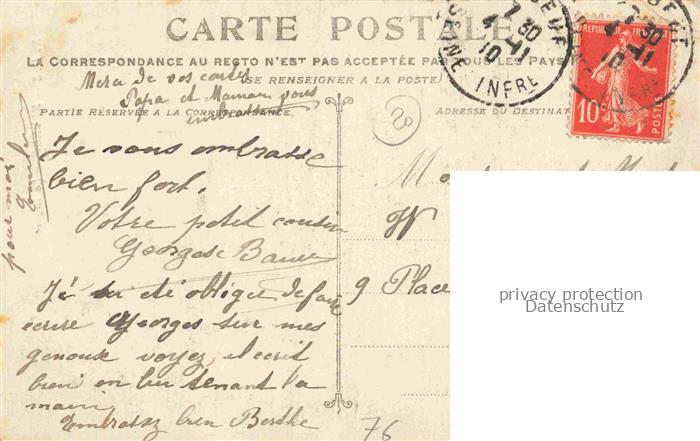 CARTE POSTALE
LA CORRESPONDANCE AU RECTO N'EST PAS ACCEPTÉE PAR TOUS LES PAYS
SE RENSEIGNER A LA POSTE
Merci de vos cartes
Papa et Maman vous
embrassent
PARTIE RÉSERVÉE A LA CORRESPONDANCE
ADRESSE DU DESTINAT
7 30
4 -11
10
SEINE INFRE
REPUBLIQUE FRANÇAISE
10c
POSTES
28
pour moi
Je vous embrasse
bien fort.
Votre petit cousin
Georges
J'ai été obligée de faire
écrire Georges sur mes
genoux voyez, il écrit
bien en lui tenant la
main
Embrassez bien Berthe
9 Place
privacy protection
Datenschutz
76